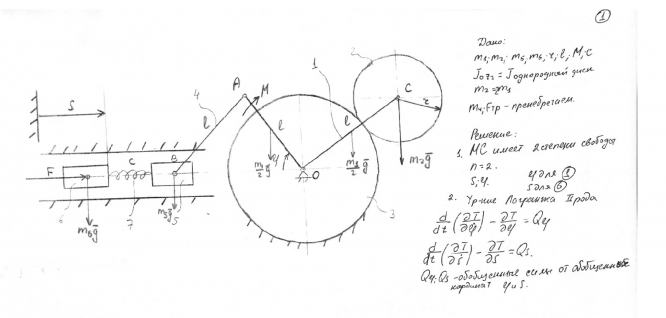 1
Дано:
m₁; m₂; m₅, m₆, r; l; M; C
J₀z₂ = J однородный диск
m₂ = m₁
m₄; Fтр - пренебрегаем.
Решение:
1. МС имеет 2 степени свободы
n = 2.
S; φ. φ для 1
S для 6
2. Ур-ние Лагранжа II рода
d/dt (∂T/∂φ̇) − ∂T/∂φ = Qφ
d/dt (∂T/∂ṡ) − ∂T/∂s = Qs.
Qφ; Qs - обобщенные силы от обобщенных
координат φ и S.
S
4
A
M
1
2
C
r
l
l
l
φ
O
m₁/2 g̅
m₁/2 g̅
m₂g̅
3
F
C
B
6
7
5
m₆g̅
m₅g̅